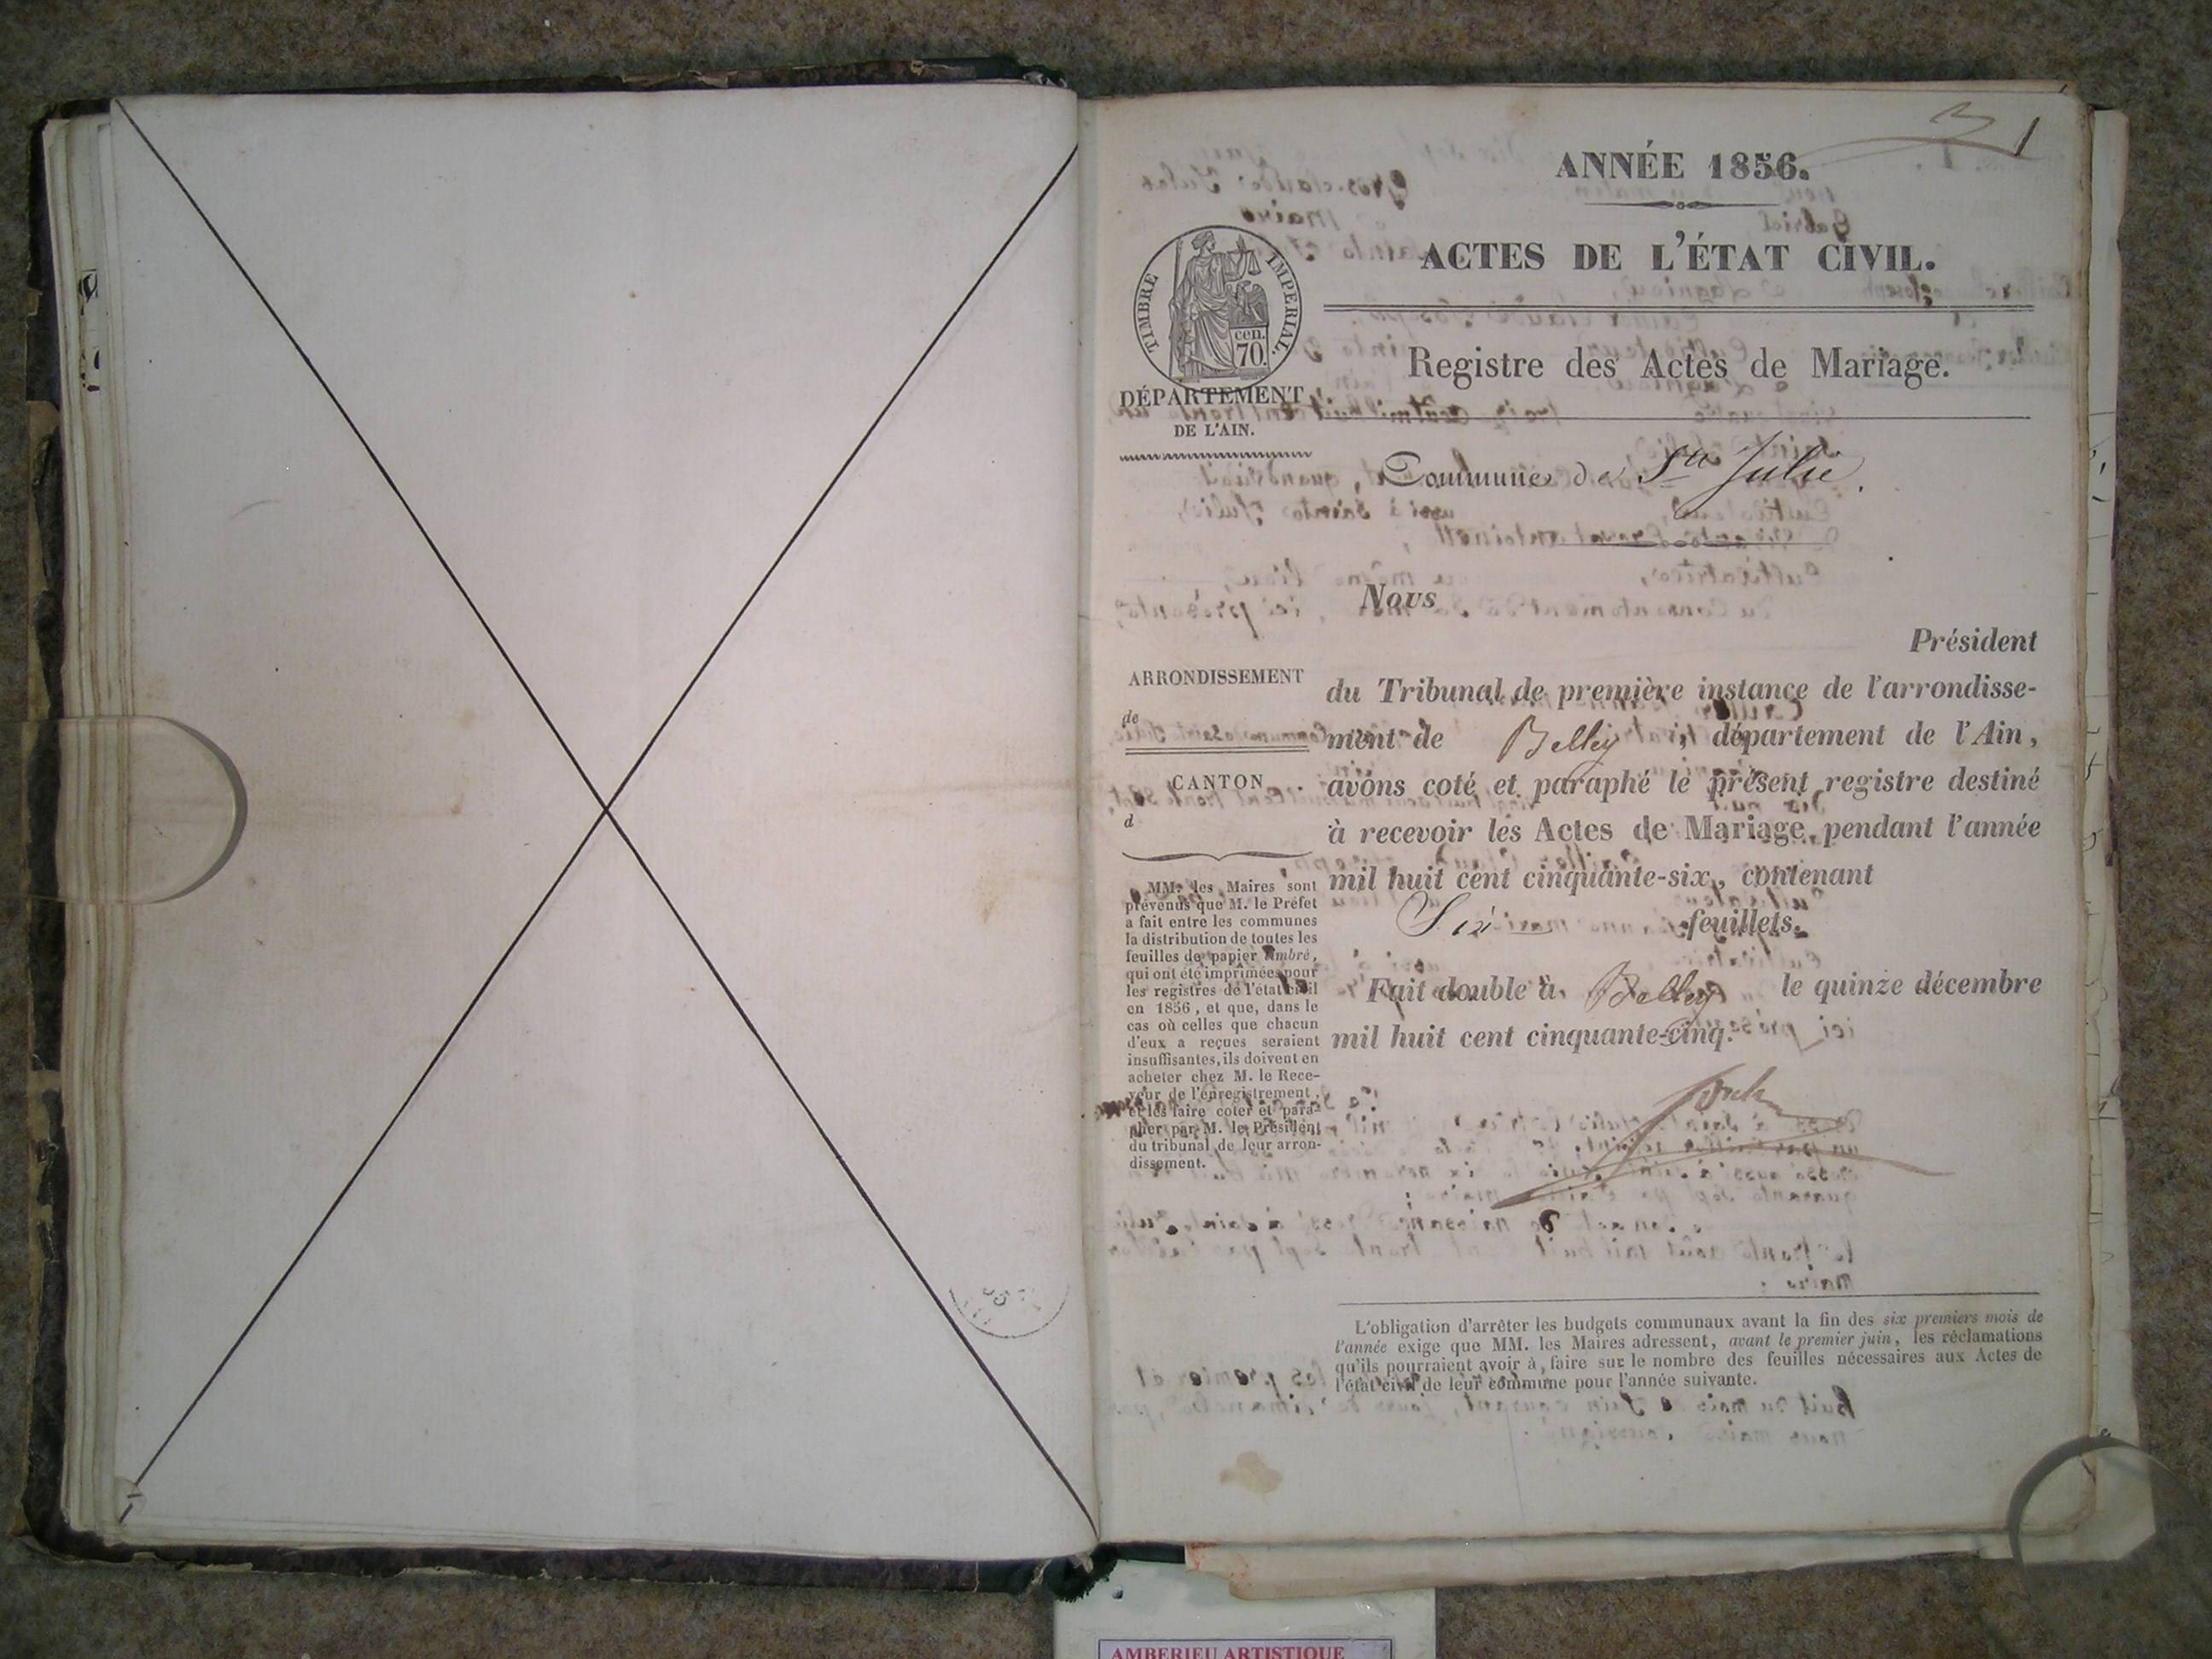 1
ANNÉE 1856.
TIMBRE IMPERIAL.
cen.
70.
ACTES DE L'ÉTAT CIVIL.
Registre des Actes de Mariage.
DÉPARTEMENT
DE L'AIN.
Commune de Ste Julie.
Nous
Président
du Tribunal de première instance de l'arrondisse-
ment de Belley, département de l'Ain,
avons coté et paraphé le présent registre destiné
à recevoir les Actes de Mariage, pendant l'année
mil huit cent cinquante-six, contenant
Six feuillets.
Fait double à Belley le quinze décembre
mil huit cent cinquante-cinq.
ARRONDISSEMENT
de
CANTON
d
MM. les Maires sont
prévenus que M. le Préfet
a fait entre les communes
la distribution de toutes les
feuilles de papier timbré,
qui ont été imprimées pour
les registres de l'état civil
en 1856, et que, dans le
cas où celles que chacun
d'eux a reçues seraient
insuffisantes, ils doivent en
acheter chez M. le Rece-
veur de l'enregistrement,
et les faire coter et para-
pher par M. le Président
du tribunal de leur arron-
dissement.
L'obligation d'arrêter les budgets communaux avant la fin des six premiers mois de
l'année exige que MM. les Maires adressent, avant le premier juin, les réclamations
qu'ils pourraient avoir à faire sur le nombre des feuilles nécessaires aux Actes de
l'état civil de leur commune pour l'année suivante.
AMBERIEU ARTISTIQUE